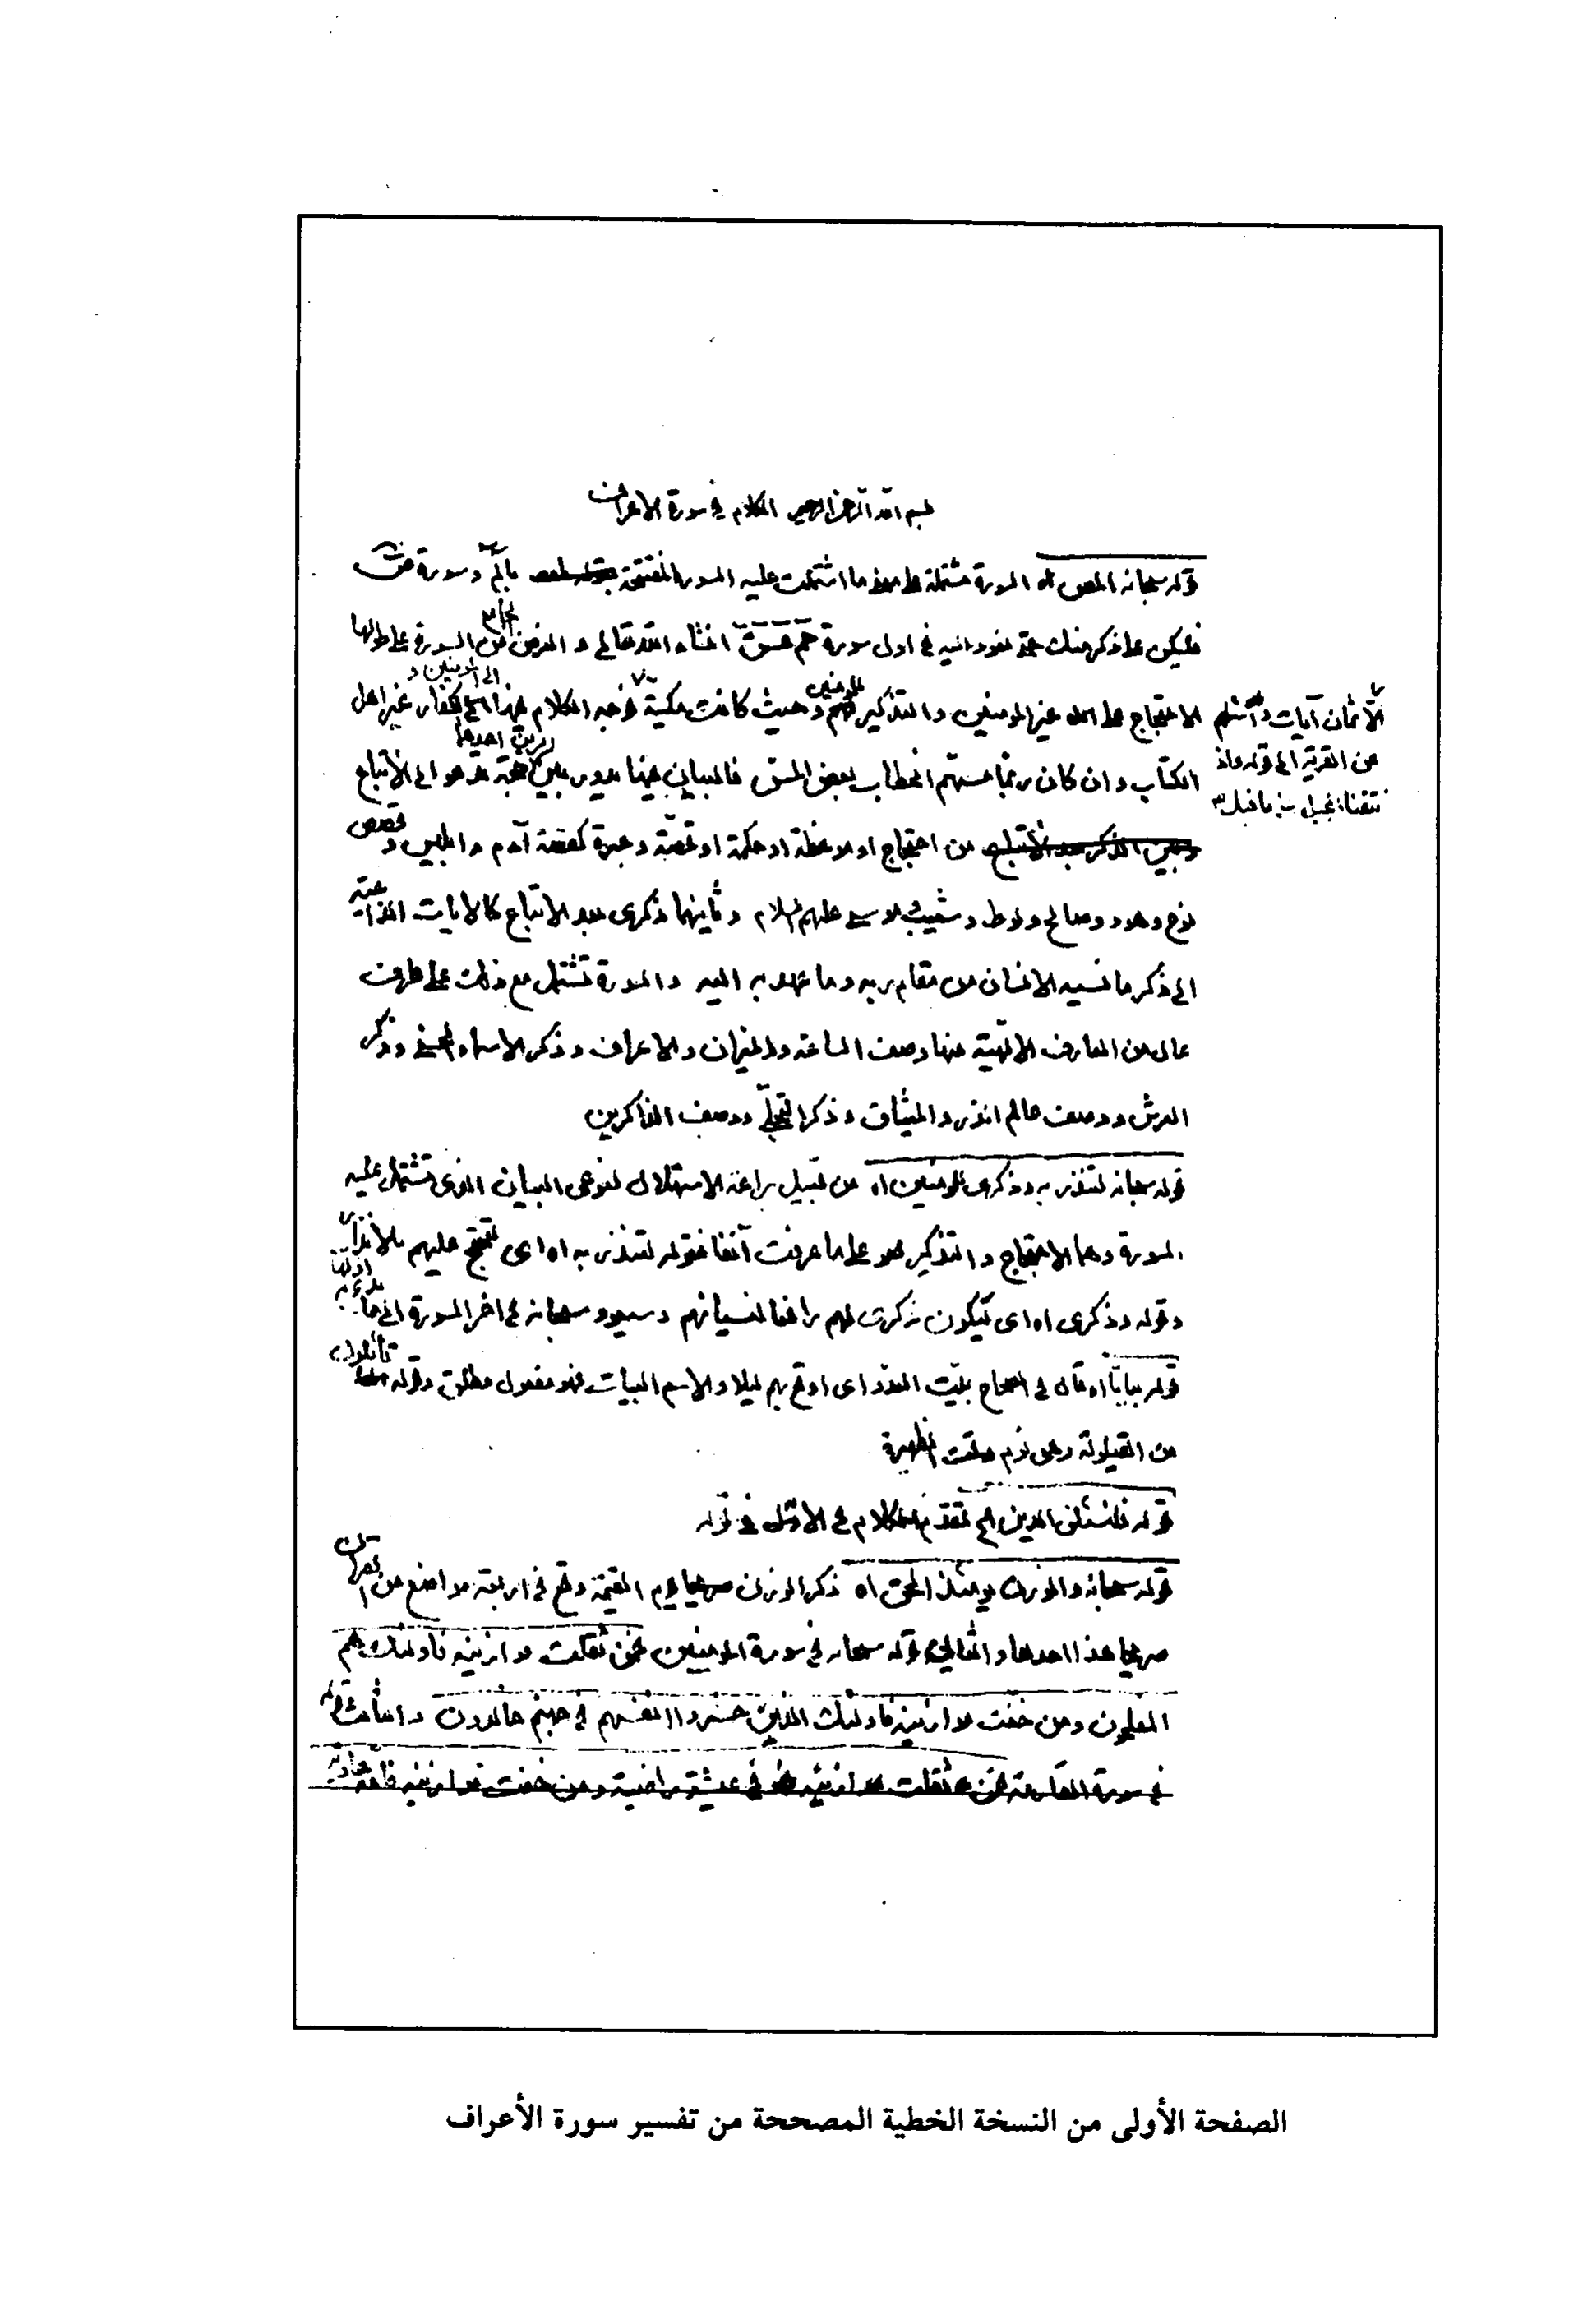 بسم الله الرحمن الرحيم الكلام في سورة الاعراف
قوله سبحانه المص اه السورة مشتملة على ما اشتملت عليه السور المفتتحة بالم وسورة ص
فليكن على ذكر منك حتى نعود اليه في اول سورة حم عسق انشاء الله تعالى والغرض العام من السورة على طولها
الاحتجاج على غير المؤمنين والتذكير للمؤمنين وحيث كانت مكية فوجه الكلام فيها الى المؤمنين والكفار غير اهل
الا ثمان آيات واسئلهم
عن القرية الى قوله واذ
نتقنا الجبل
الكتاب وان كان ربما مستهم الخطاب بعض المس فالبيان فيها يدور بين امرين احدهما حجة تدعو الى الاتباع
وبين الذكر بعد الاتباع من احتجاج او موعظة او حكمة او قصة وعبرة كقصة آدم وابليس وقصص
نوح وهود وصالح ولوط وشعيب وموسى عليهم السلام وثانيهما ذكرى بعد الاتباع كالايات الداعية
الى ذكر ما نسيه الانسان من مقام ربه وما عهد به اليه والسورة تشتمل مع ذلك على طرف
عال من المعارف الالهية منها وصف الساعة والميزان والاعراف وذكر الاسماء الحسنى وذكر
العرش ووصف عالم الذر والميثاق وذكر التجلي ووصف الذاكرين
قوله سبحانه لتنذر به وذكرى للمؤمنين اه من قبيل براعة الاستهلال لنوعى البيان الذى تشتمل عليه
السورة وهما الاحتجاج والتذكير على ما عرفت آنفا فقوله لتنذر به اه اى لتحتج عليهم بالانذار
وقوله وذكرى اه اى ليكون ذكرى لهم رافعا لنسيانهم وسيعود سبحانه في اخر السورة الى ما
قوله بياتا اه قال في الصحاح بيت العدو اى اوقع بهم ليلا والاسم البيات فهو مفعول مطلق وقوله قائلون
من القيلولة وهى نوم وقت الظهيرة
قوله فلنسئلن الذين الخ تقدم الكلام في قوله
قوله سبحانه والوزن يومئذ الحق اه ذكر الوزن يوم القيمة وقع في اربعة مواضع من القرآن
صريحا هذا احدها والثاني قوله سبحانه في سورة المؤمنين فمن ثقلت موازينه فاولئك هم
المفلحون ومن خفت موازينه فاولئك الذين خسروا انفسهم في جهنم خالدون والثالث قوله
في سورة القارعة فمن ثقلت موازينه فهو في عيشة راضية ومن خفت موازينه فامه هاوية
الصفحة الأولى من النسخة الخطية المصححة من تفسير سورة الأعراف